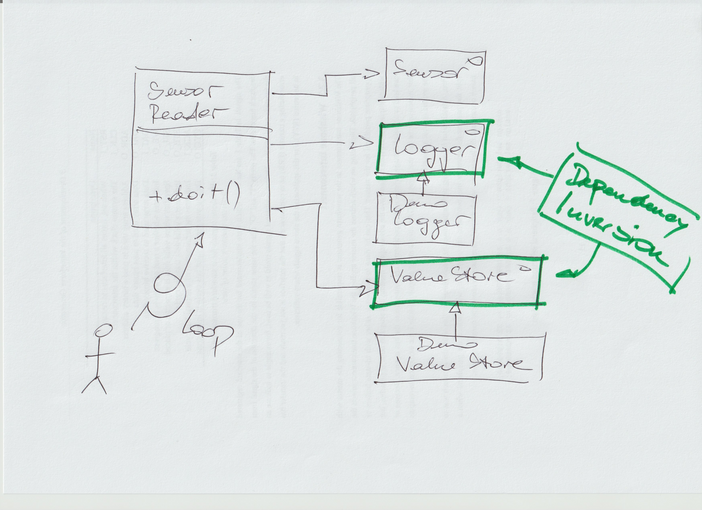 Sensor
Reader
+doit()
Loop
Sensor
Logger
Demo
Logger
Value Store
Demo
Value Store
Dependency
Inversion